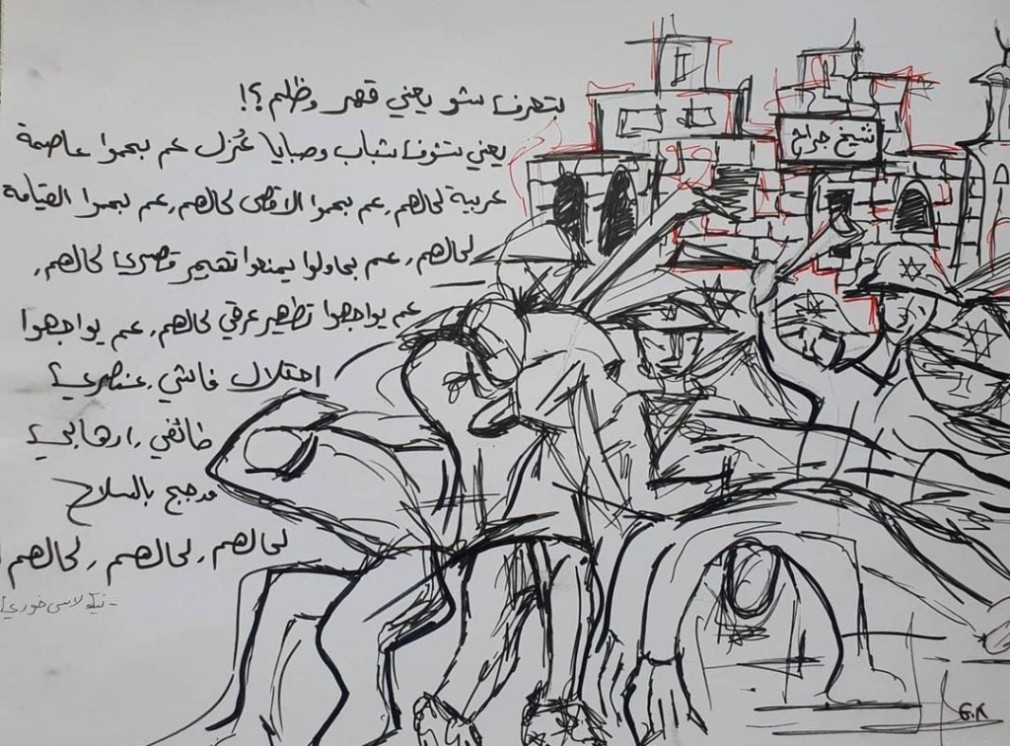 بتعرف شو يعني قهر وظلم؟!
يعني تشوف شباب وصبايا عُزل عم بحموا عاصمة
عربية لحالهم, عم بحموا الاقصى لحالهم, عم بحموا القيامة
لحالهم, عم بحاولوا يمنعوا تهجير قصري لحالهم,
عم يواجهوا تطهير عرقي لحالهم, عم يواجهوا
احتلال فاشي, عنصري,
طائفي, ارهابي,
مدجج بالسلاح
لحالهم, لحالهم, لحالهم
- نيكولاس خوري
شيخ جراح
G.K